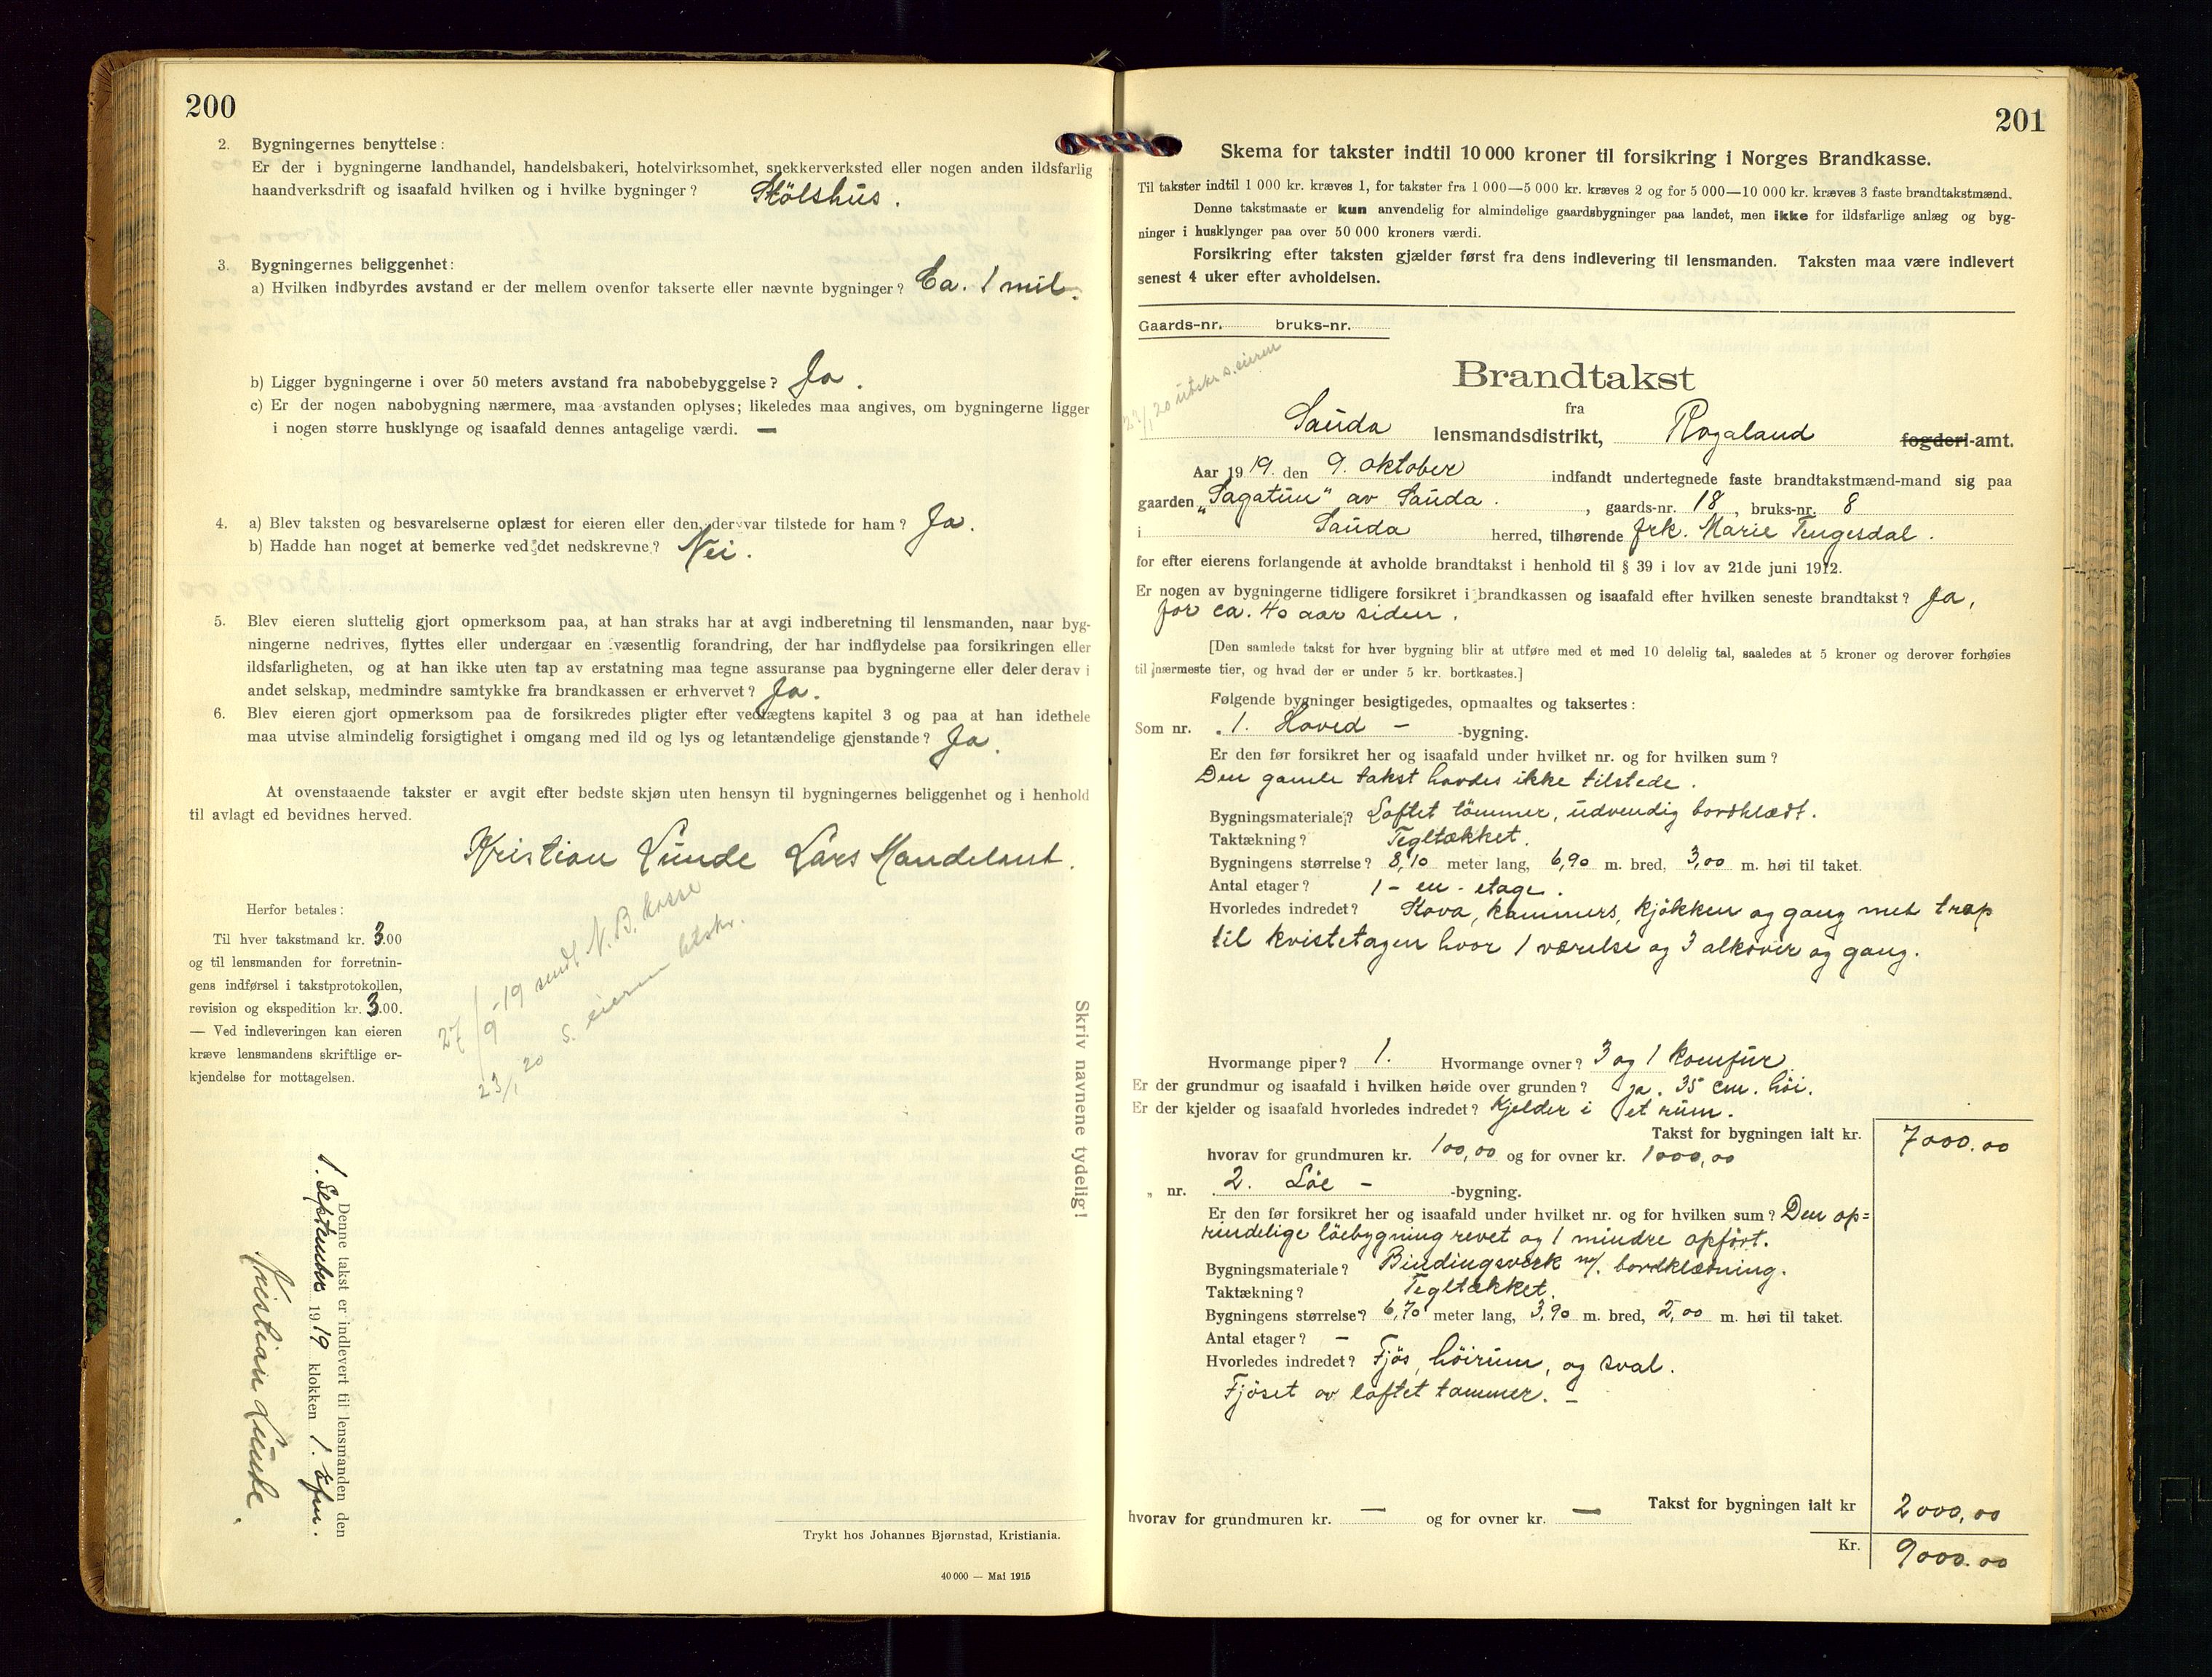 200
2. Bygningernes benyttelse:
Er der i bygningerne landhandel, handelsbakeri, hotelvirksomhet, snekkerverksted eller nogen anden ildsfarlig
haandverksdrift og isaafald hvilken og i hvilke bygninger? Stölshus.
3. Bygningernes beliggenhet:
a) Hvilken indbyrdes avstand er der mellem ovenfor takserte eller nævnte bygninger? Ca. 1 mil.
b) Ligger bygningerne i over 50 meters avstand fra nabobebyggelse? Ja.
c) Er der nogen nabobygning nærmere, maa avstanden oplyses; likeledes maa angives, om bygningerne ligger
i nogen større husklynge og isaafald dennes antagelige værdi. —
4. a) Blev taksten og besvarelserne oplæst for eieren eller den, der var tilstede for ham? Ja.
b) Hadde han noget at bemerke ved det nedskrevne? Nei.
5. Blev eieren sluttelig gjort opmerksom paa, at han straks har at avgi indberetning til lensmanden, naar byg-
ningerne nedrives, flyttes eller undergaar en væsentlig forandring, der har indflydelse paa forsikringen eller
ildsfarligheten, og at han ikke uten tap av erstatning maa tegne assuranse paa bygningerne eller deler derav i
andet selskap, medmindre samtykke fra brandkassen er erhvervet? Ja.
6. Blev eieren gjort opmerksom paa de forsikredes pligter efter vedtægtens kapitel 3 og paa at han idethele
maa utvise almindelig forsigtighet i omgang med ild og lys og letantændelige gjenstande? Ja.
At ovenstaaende takster er avgit efter bedste skjøn uten hensyn til bygningernes beliggenhet og i henhold
til avlagt ed bevidnes herved.
Kristian Lunde Lars Handeland.
Herfor betales:
Til hver takstmand kr. 3.00
og til lensmanden for forretnin-
gens indførsel i takstprotokollen,
revision og ekspedition kr. 3.00.
— Ved indleveringen kan eieren
kræve lensmandens skriftlige er-
kjendelse for mottagelsen.
27/9-19 sendt N. B. kasse
23/1 20 s. eieren utskr.
Skriv navnene tydelig!
Denne takst er indlevert til lensmanden den
1. September 1919 klokken 1. efm.
Kristian Lunde.
Trykt hos Johannes Bjørnstad, Kristiania.
40 000 — Mai 1915
201
Skema for takster indtil 10 000 kroner til forsikring i Norges Brandkasse.
Til takster indtil 1 000 kr. kræves 1, for takster fra 1 000—5 000 kr. kræves 2 og for 5 000—10 000 kr. kræves 3 faste brandtakstmænd.
Denne takstmaate er kun anvendelig for almindelige gaardsbygninger paa landet, men ikke for ildsfarlige anlæg og byg-
ninger i husklynger paa over 50 000 kroners værdi.
Forsikring efter taksten gjælder først fra dens indlevering til lensmanden. Taksten maa være indlevert
senest 4 uker efter avholdelsen.
Gaards-nr. bruks-nr.
23/1 20 utskr. s. eieren
Brandtakst
fra
Sauda lensmandsdistrikt, Rogaland fogderi-amt.
Aar 1919. den 9. oktober indfandt undertegnede faste brandtakstmænd-mand sig paa
gaarden „Sagatun" av Sauda. , gaards-nr. 18, bruks-nr. 8
i Sauda herred, tilhørende frk. Marie Tengesdal.
for efter eierens forlangende at avholde brandtakst i henhold til § 39 i lov av 21de juni 1912.
Er nogen av bygningerne tidligere forsikret i brandkassen og isaafald efter hvilken seneste brandtakst? Ja,
for ca. 40 aar siden.
[Den samlede takst for hver bygning blir at utføre med et med 10 delelig tal, saaledes at 5 kroner og derover forhøies
til nærmeste tier, og hvad der er under 5 kr. bortkastes.]
Følgende bygninger besigtigedes, opmaaltes og taksertes:
Som nr. 1. Hoved - -bygning.
Er den før forsikret her og isaafald under hvilket nr. og for hvilken sum?
Den gamle takst havdes ikke tilstede.
Bygningsmateriale? Laftet tömmer, udvendig bordklædt.
Taktækning? Tegltækket.
Bygningens størrelse? 8,10 meter lang, 6,90 m. bred, 3,00 m. høi til taket.
Antal etager? 1 - en - etage.
Hvorledes indredet? Stova, kammers, kjökken og gang med trap
til kvistetagen hvor 1 værelse og 3 alkover og gang.
Hvormange piper? 1. Hvormange ovner? 3 og 1 komfur
Er der grundmur og isaafald i hvilken høide over grunden? ja. 35 cm. höi.
Er der kjelder og isaafald hvorledes indredet? Kjelder i et rum.
Takst for bygningen ialt kr. 7000.00
hvorav for grundmuren kr. 100,00 og for ovner kr. 1000,00
„ nr. 2. Löe - -bygning.
Er den før forsikret her og isaafald under hvilket nr. og for hvilken sum? Den op=
rindelige löebygning revet og 1 mindre opfört.
Bygningsmateriale? Bindingsverk m/. bordklædning.
Taktækning? Tegltækket.
Bygningens størrelse? 6,70 meter lang, 3,90 m. bred, 2,00 m. høi til taket.
Antal etager? -
Hvorledes indredet? Fjös, höirum, og sval.
Fjöset av laftet tömmer. -
Takst for bygningen ialt kr 2000,00
hvorav for grundmuren kr. — og for ovner kr. —
Kr. 9000.00